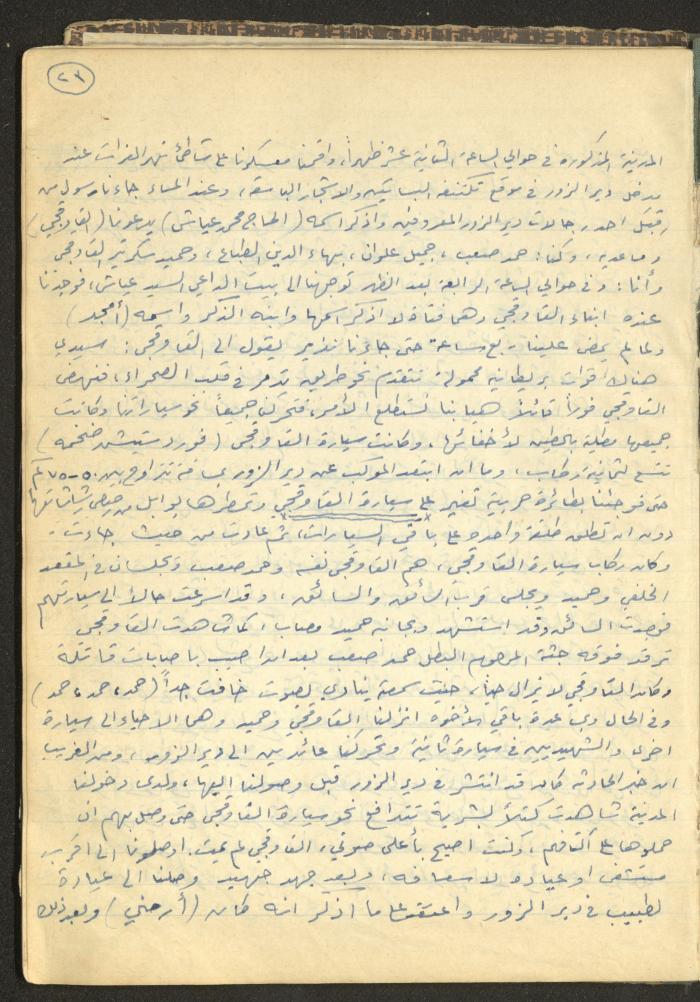 ٢٣
المدينة المذكورة في حوالي الساعة الثانية عشر ظهراً، واقمنا معسكرنا على شاطئ نهر الفرات عند
مدخل دير الزور في موقع تكتنفه البساتين والاشجار الباسقة، وعند المساء جاءنا رسول من
قِبَل احد رجالات دير الزور المعروفين واذكر اسمه (الحاج محمد عياش) يدعونا (القاوقجي)
ومساعديه، وكنا: حمد صعب، جميل علوان، بهاء الدين الطباع، وحميد سكرتير القاوقجي
وأنا: وفي حوالي الساعة الرابعة بعد الظهر توجهنا الى بيت الداعي السيد عياش، فوجدنا
عنده ابناء القاوقجي وهما فتاة لا اذكر اسمها وابنه الذكر واسمه (أمجد)
ولما لم يمض علينا ربع ساعة حتى جاءنا نذير يقول الى القاوقجي: سيدي
هناك قوات بريطانيه محمولة تتقدم نحو طريق تدمر في قلب الصحراء، فنهض
القاوقجي فوراً قائلاً هيا بنا نستطلع الأمر، فتحركنا جميعاً نحو سياراتنا وكانت
جميعها مطلية بالطين لأخفائها، وكانت سيارة القاوقجي (فورد ستيشن ضخمه)
تتسع لثمانية ركاب، وما ان ابتعد الموكب عن دير الزور بمسافة تتراوح بين ٥٠-٧٥ كم
حتى فوجئنا بطائرة حربية تغير على سيارة القاوقجي وتمطرها بوابل من رصاص رشاشاتها
دون ان تطلق طلقة واحدة على باقي السيارات، ثم عادت من حيث جاءت.
وكان ركاب سيارة القاوقجي، هم القاوقجي نفسه وحمد صعب ويجلسان في المقعد
الخلفي وحميد ويجلس قرب السائق والسائق، وقد اسرعت حالاً الى سيارتهم
فوجدت السائق وقد استشهد وبجانبه حميد مصاب، كما شاهدت القاوقجي
ترقد فوقه جثة المرحوم البطل حمد صعب بعد ان اصيب باصابات قاتلة
وكان القاوقجي لا يزال حياً، حيث سمعته ينادي بصوت خافت جداً (حمد، حمد، حمد)
وفي الحال وبمساعدة باقي الأخوه انزلنا القاوقجي وحميد وهما الاحياء الى سيارة
اخرى والشهيدين في سيارة ثانية وتحركنا عائدين الى دير الزور، ومن الغريب
ان خبر الحادثه كان قد انتشر في دير الزور قبل وصولنا اليها، ولدى دخولنا
المدينة شاهدت كتلاً بشرية تتدافع نحو سيارة القاوقجي حتى وصل بهم ان
حملوها على اكتافهم، وكنت اصيح بأعلى صوتي، القاوقجي لم يمت، اوصلونا الى اقرب
مستشفى او عيادة لاسعافه، وبعد جهد جهيد وصلنا الى عيادة
لطبيب في دير الزور واعتقد على ما اذكر انه كان (أرمني) وبعد ذلك